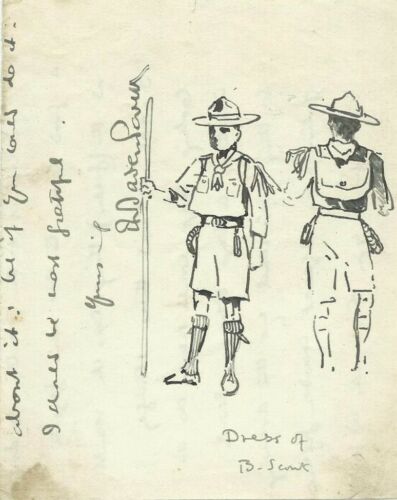 about it: but if you could do it.
I should be most grateful.
Yours
Dress of
B-Scout